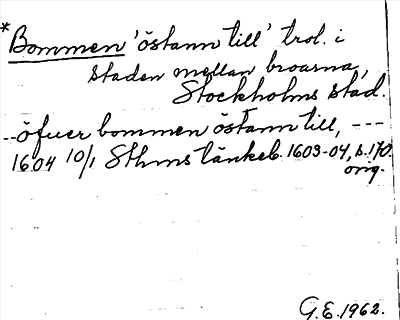 *Bommen 'östann till' trol. i
staden mellan broarna,
Stockholms stad.
--öfuer bommen östann till, ---
1604 10/1 Sthms tänkeb. 1603-04, s. 170.
orig.
G.E. 1962.